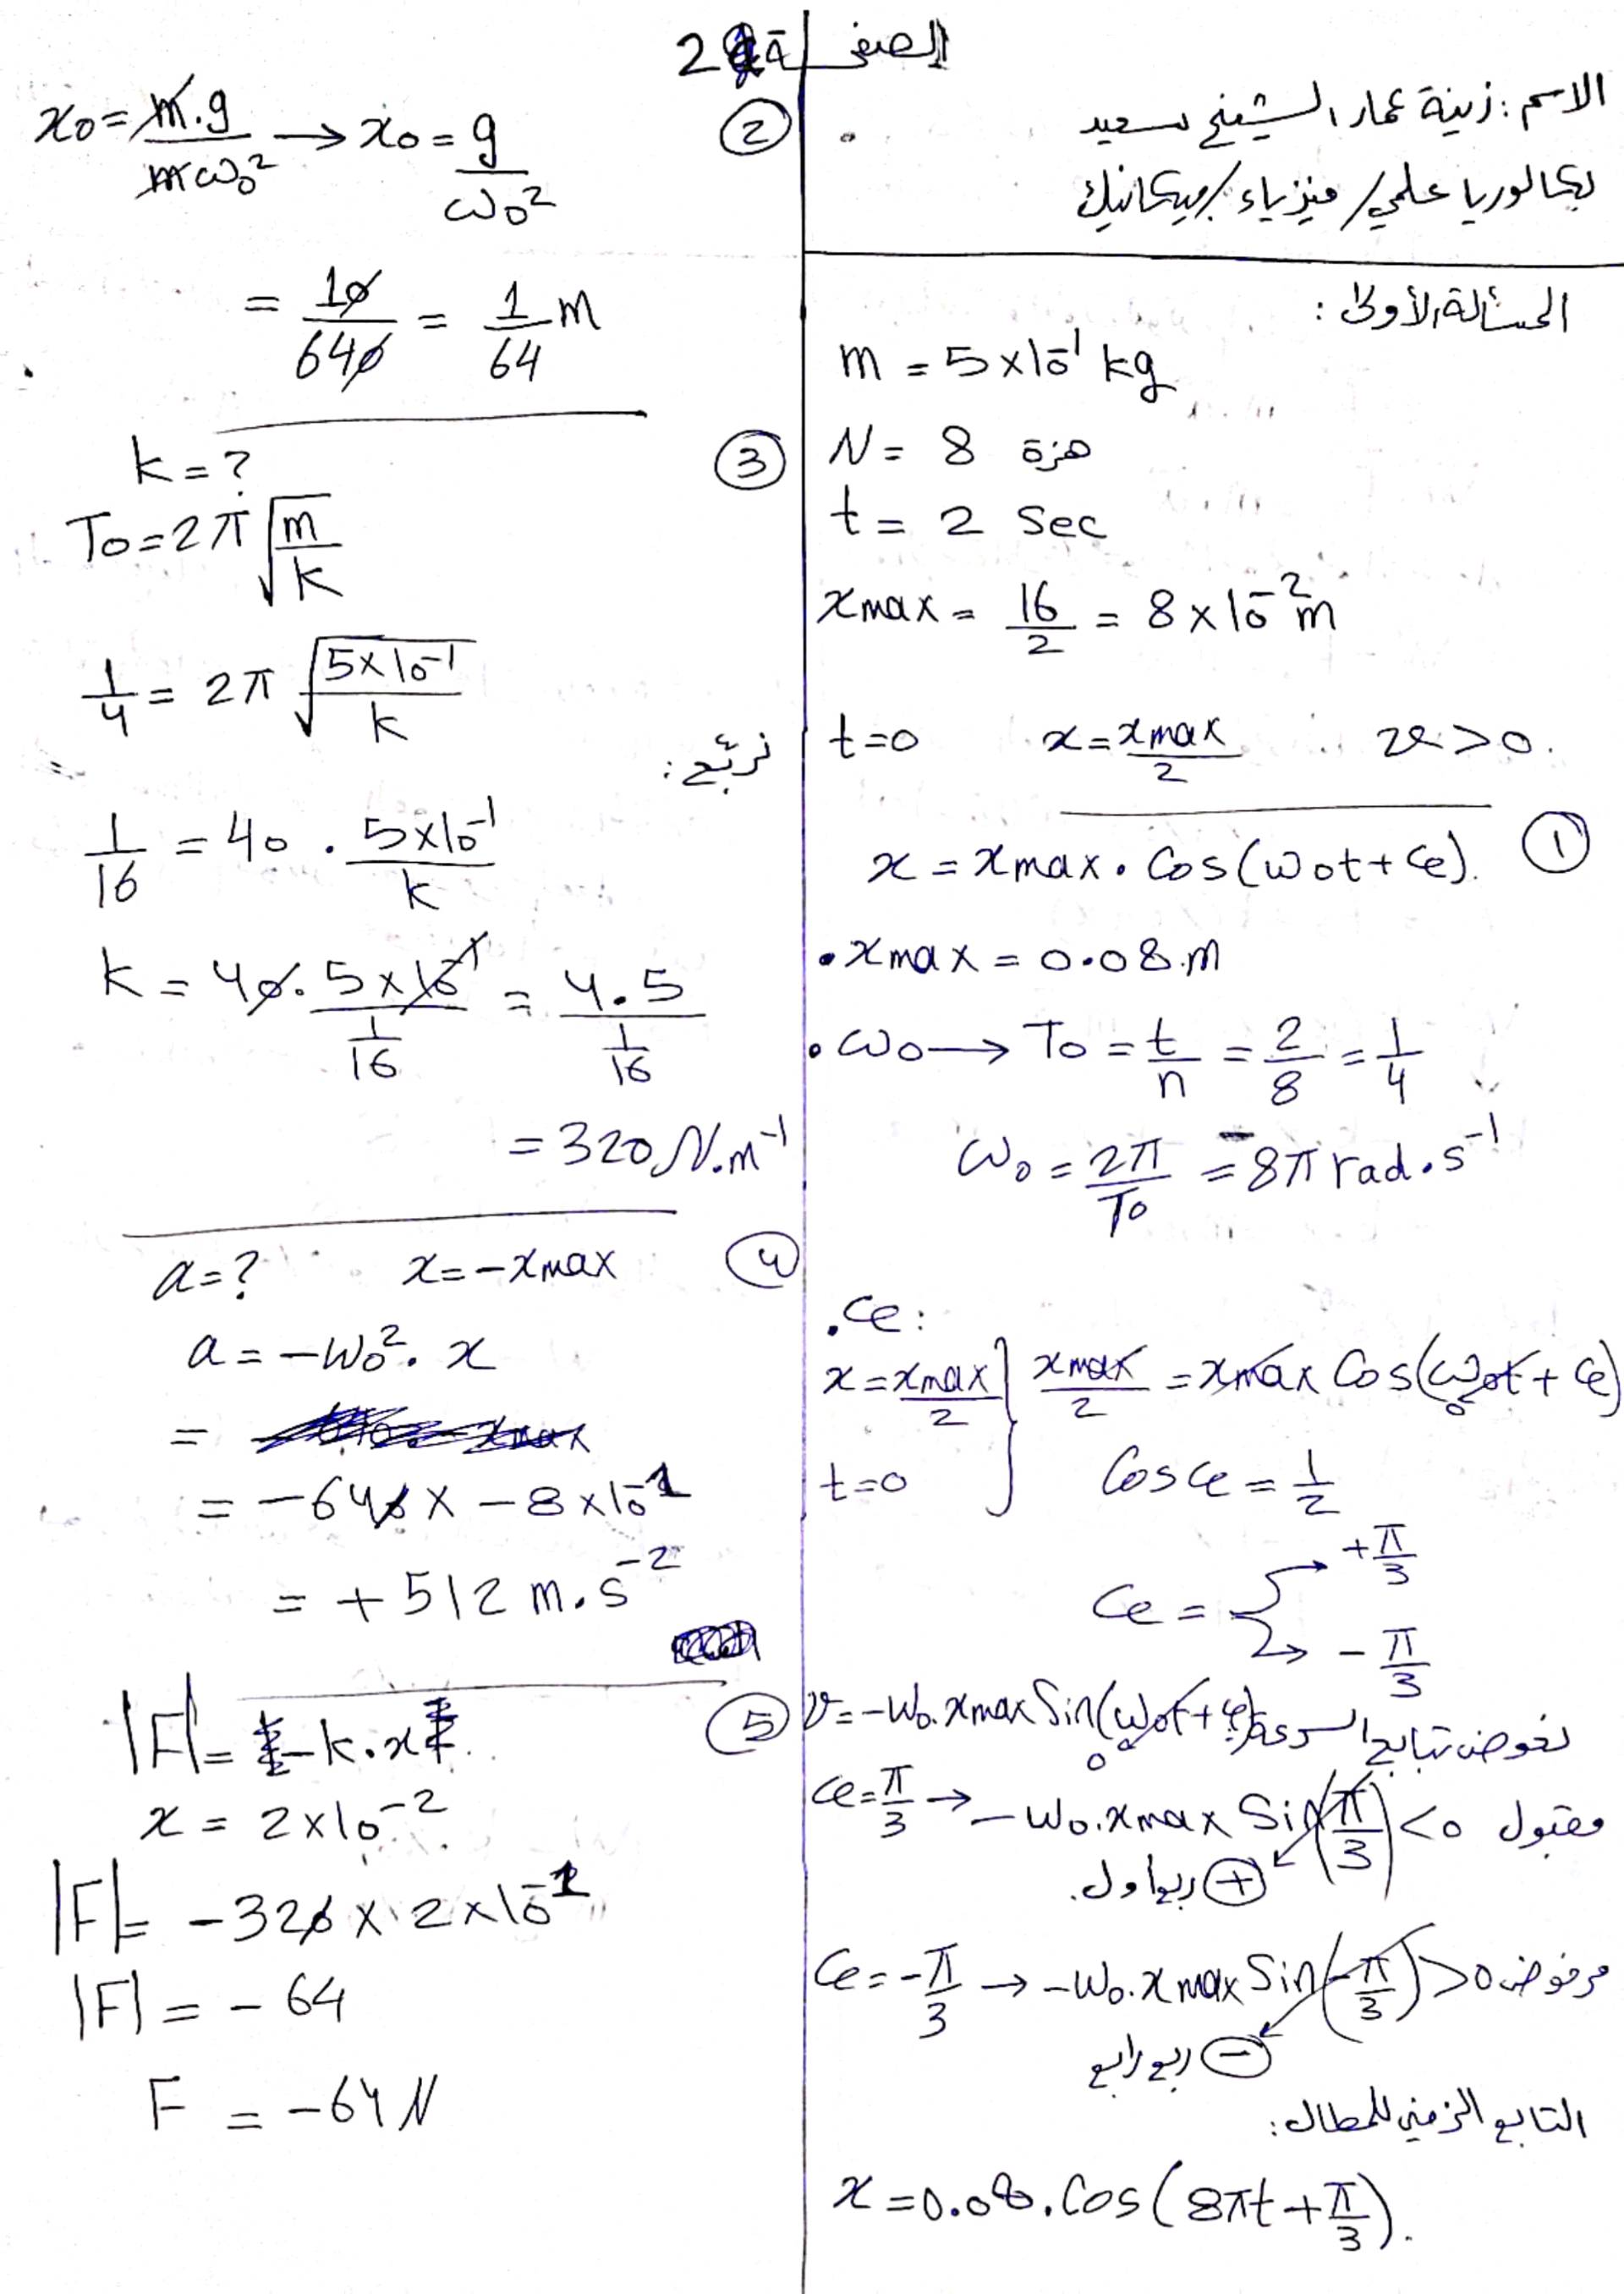 الصفحة 2
الاسم: زينة عمار الشيخ سعيد
بكالوريا علمي/ فيزياء/ميكانيك
المسألة الأولى:
m = 5×10⁻¹ kg
N = 8 هزة
t = 2 sec
xmax = 16/2 = 8×10⁻² m
t=0 x = xmax/2 v>0.
①
x = xmax. Cos(ω₀t+φ).
• xmax = 0.08.m
• ω₀ → T₀ = t/n = 2/8 = 1/4
ω₀ = 2π/T₀ = 8π rad.s⁻¹
.φ:
x = xmax/2 } xmax/2 = xmax Cos(ω₀t+φ)
t=0 Cosφ = 1/2
φ = +π/3
→ -π/3
نعوض بتابع السرعة v = -ω₀.xmax Sin(ω₀t+φ)
φ = π/3 → -ω₀.xmax Sin(π/3) <0 مقبول
⊕ ربع اول.
φ = -π/3 → -ω₀.xmax Sin(-π/3) >0 مرفوض
⊖ ربع رابع
التابع الزمني للمطال:
x = 0.08.Cos(8πt+π/3).
②
x₀ = m.g/mω₀² → x₀ = g/ω₀²
= 10/640 = 1/64 m
③
k = ?
T₀ = 2π√(m/k)
1/4 = 2π √(5×10⁻¹/k)
نربّع:
1/16 = 40 . 5×10⁻¹/k
k = 40. 5×10⁻¹/(1/16) = 4.5/(1/16)
= 320 N.m⁻¹
④
a = ? x = -xmax
a = -ω₀². x
=
= -640 × -8×10⁻¹
= +512 m.s⁻²
⑤
|F| = -k.x
x = 2×10⁻²
|F| = -320 × 2×10⁻¹
|F| = -64
F = -64 N